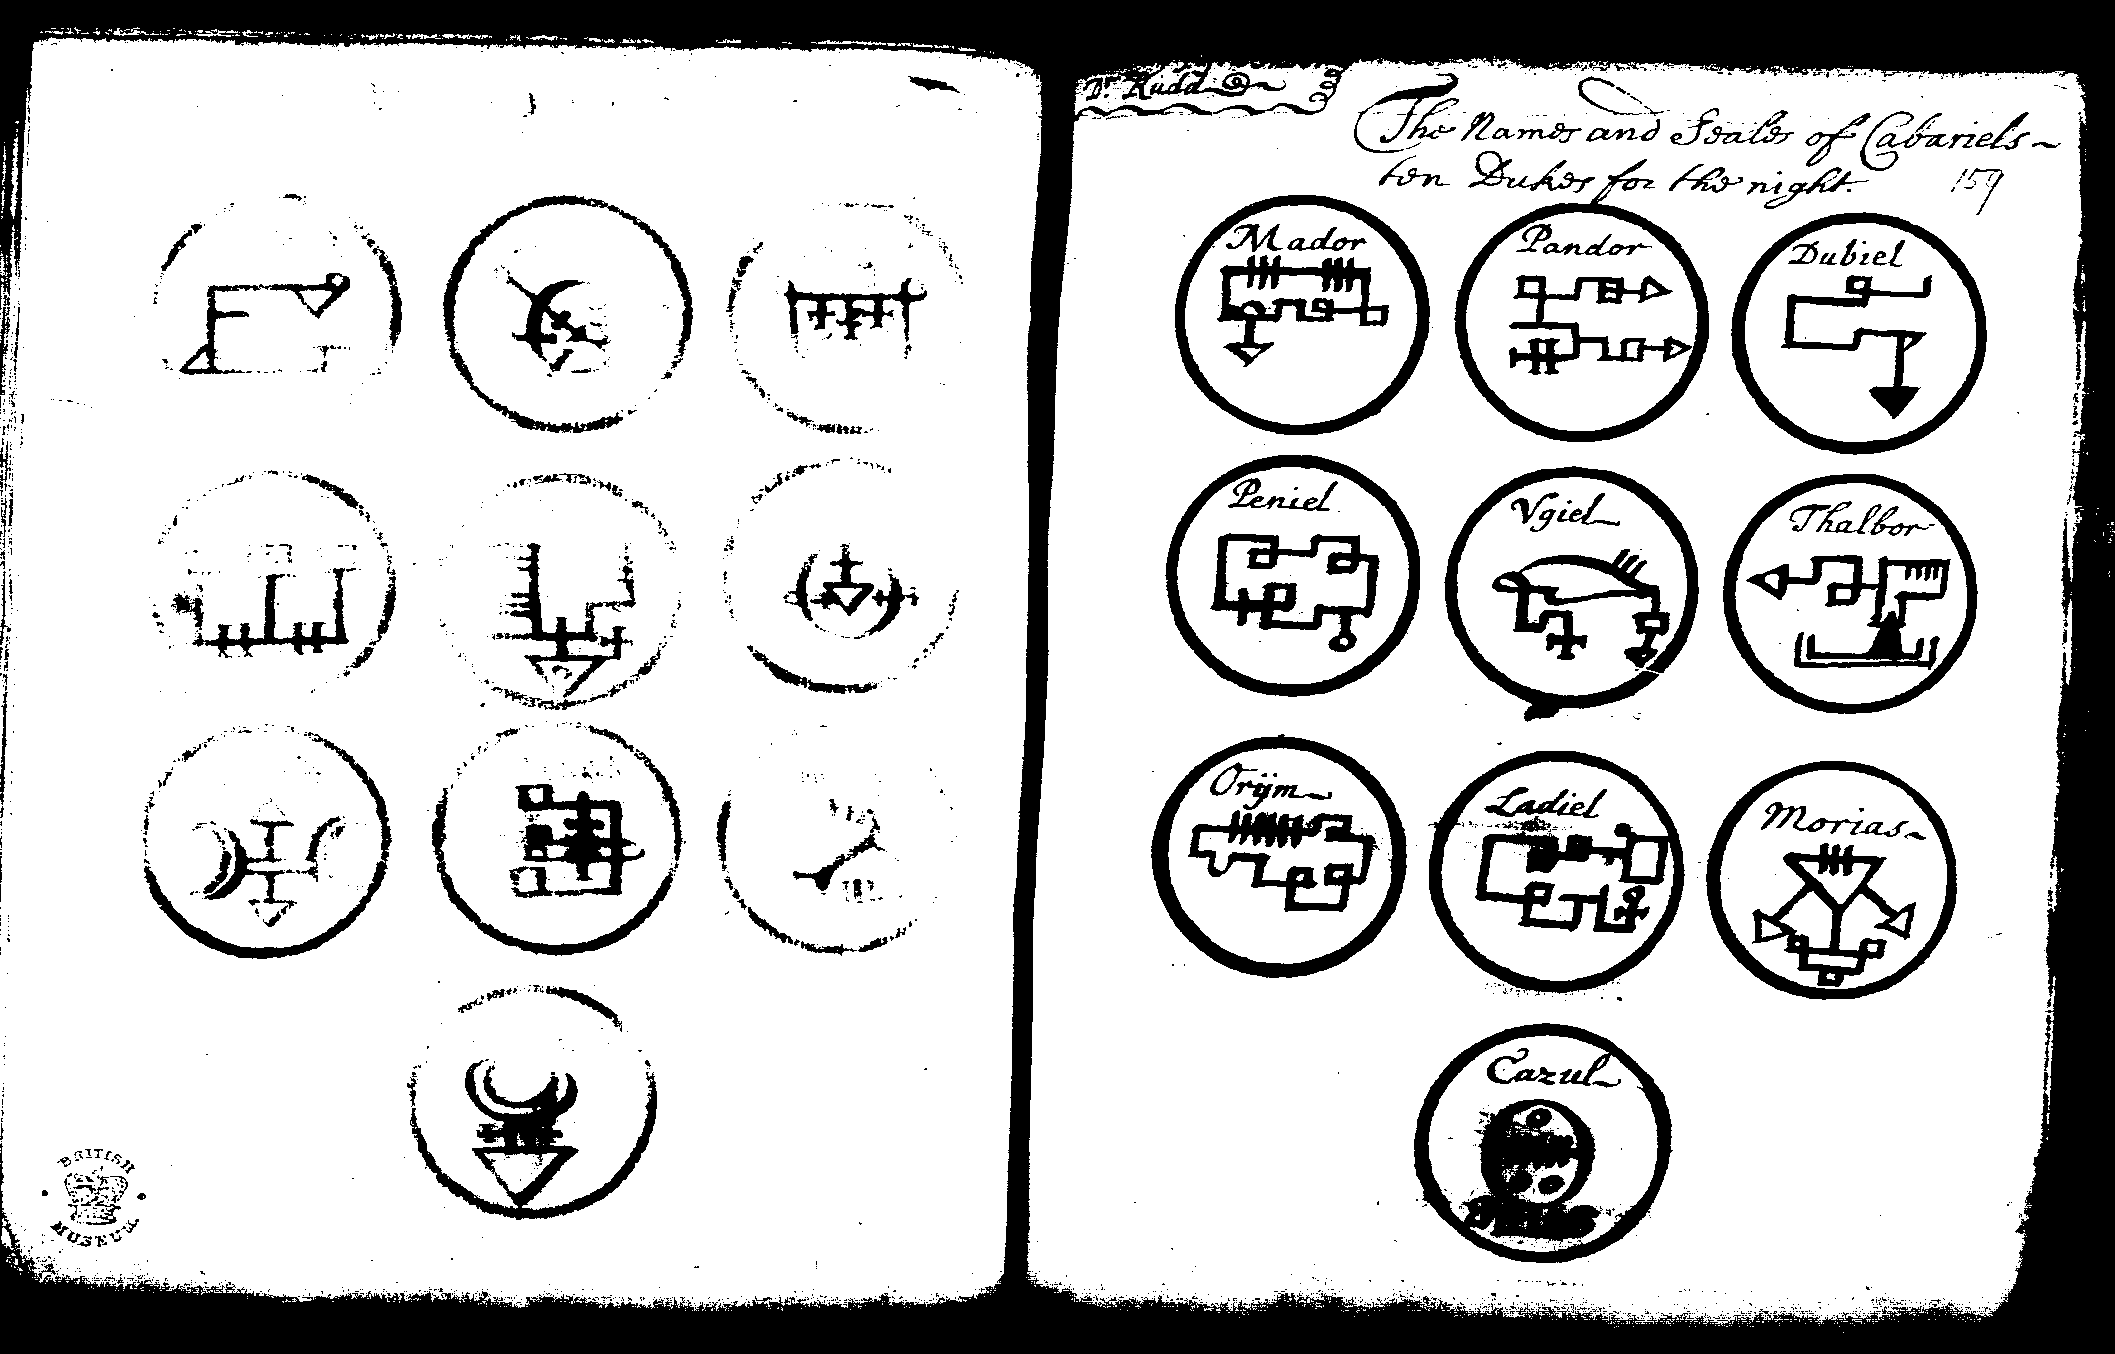 BRITISH
MUSEUM
Dr. Rudd
The Names and Seales of Cabariels
ten Dukes for the night.
159
Mador
Pandor
Dubiel
Peniel
Vgiel
Thalbor
Orijm
Ladiel
Morias
Cazul